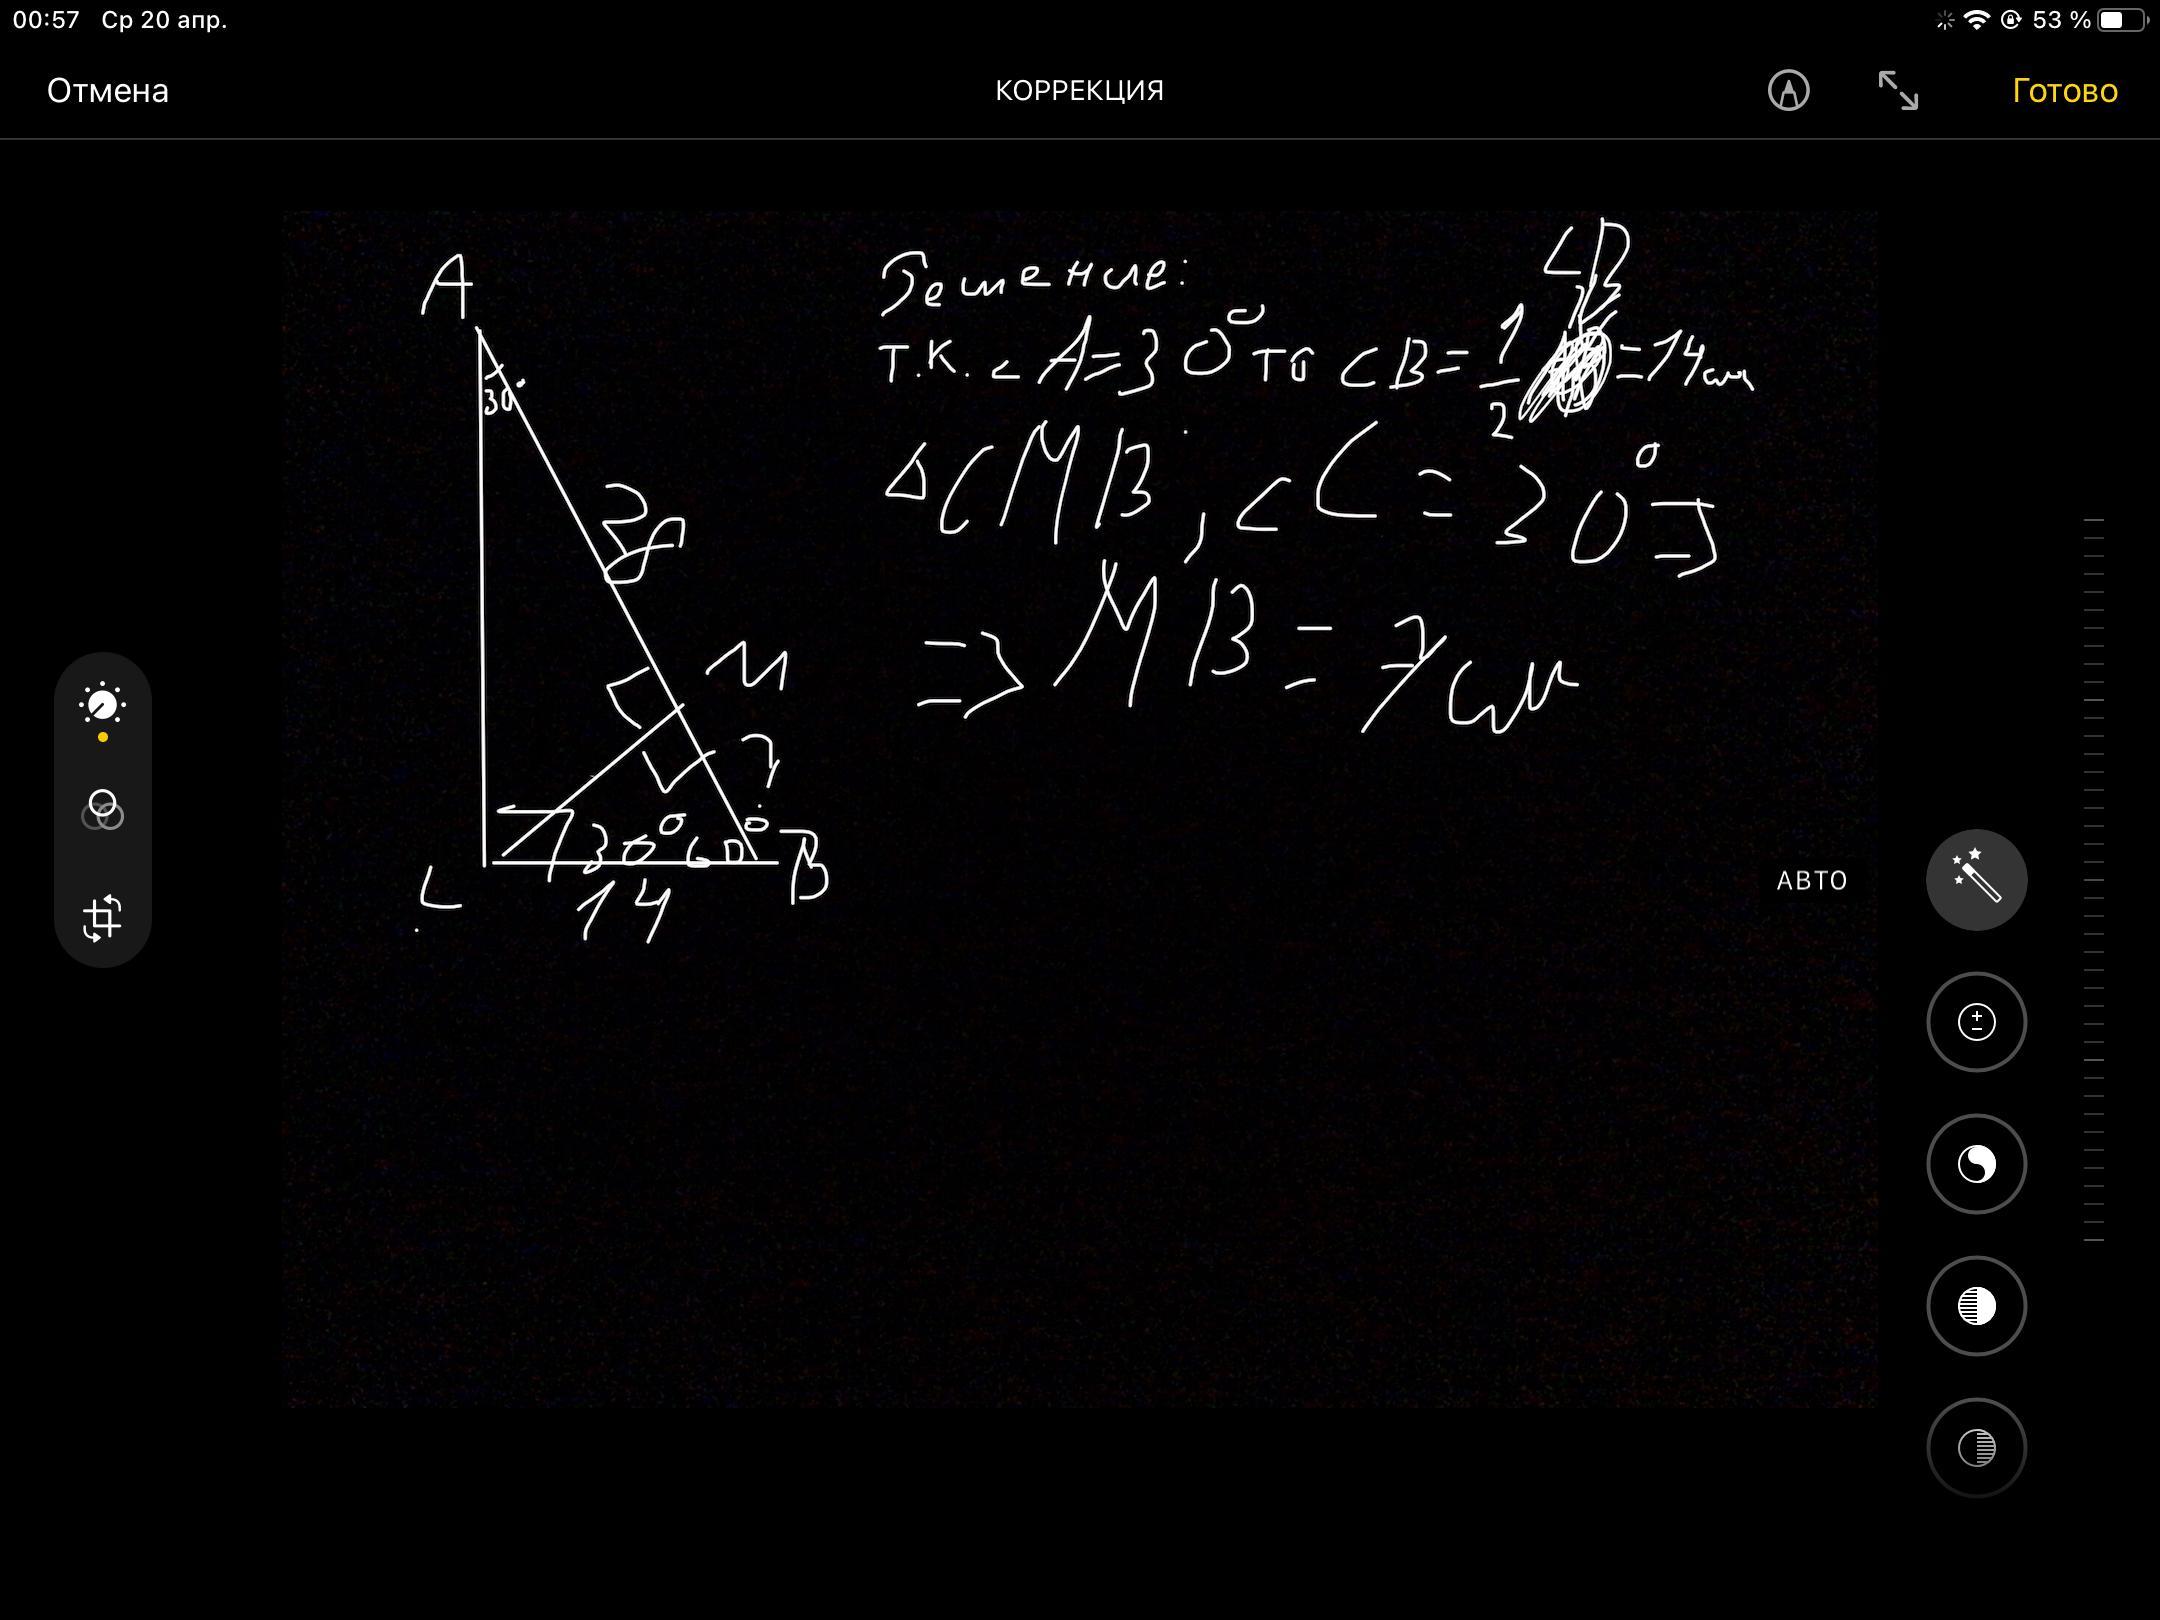 00:57 Ср 20 апр. 53 %
Отмена КОРРЕКЦИЯ Готово
A
30°
M
?
30° 60°
C
B
14
Решение:
т.к. ∠A=30° то CB=1/2 =14см
△CMB, ∠C=30°=>
=> MB=7см
АВТО